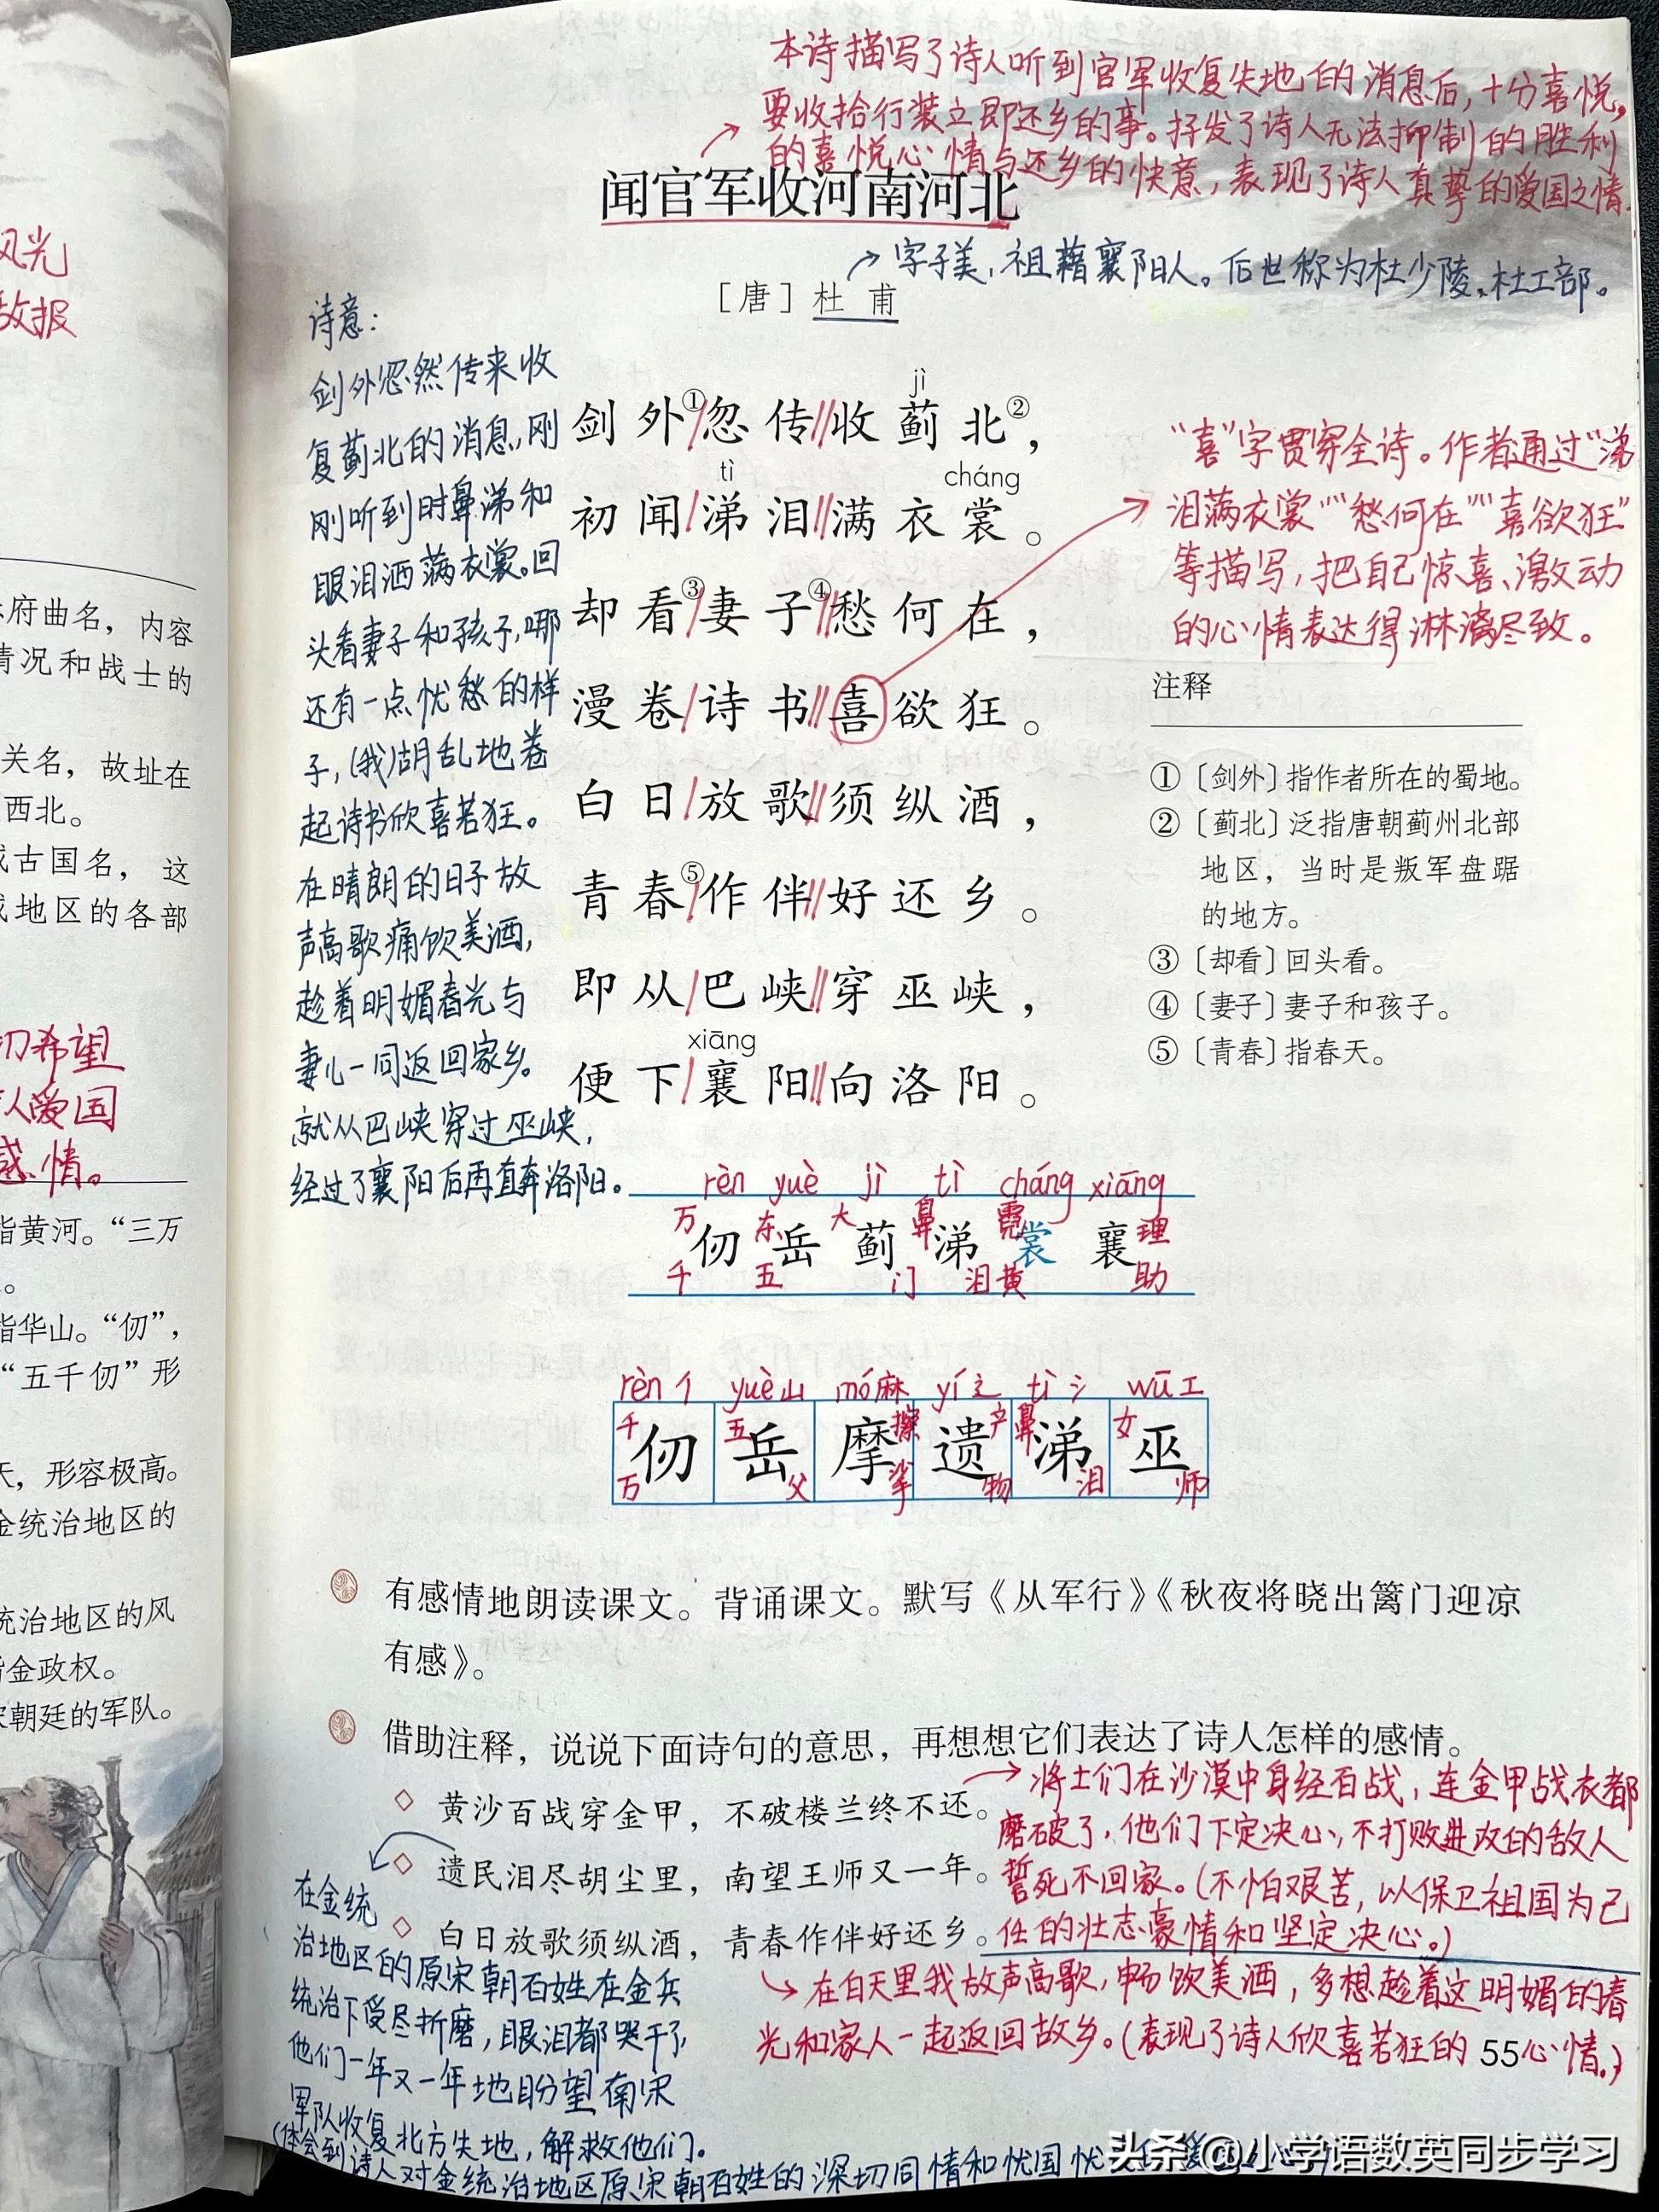 风光
敌报
府曲名，内容
情况和战士的
关名，故址在
西北。
古国名，这
地区的各部
切希望
人爱国
感情。
指黄河。“三万
指华山。“仞”，
“五千仞”形
天，形容极高。
金统治地区的
统治地区的风
指金政权。
宋朝廷的军队。
本诗描写了诗人听到官军收复失地的消息后，十分喜悦，
要收拾行装立即还乡的事。抒发了诗人无法抑制的胜利
的喜悦心情与还乡的快意，表现了诗人真挚的爱国之情。
闻官军收河南河北
字子美，祖籍襄阳人。后世称为杜少陵、杜工部。
［唐］杜 甫
诗意：
剑外忽然传来收
复蓟北的消息，刚
刚听到时鼻涕和
眼泪洒满衣裳。回
头看妻子和孩子，哪
还有一点忧愁的样
子，(我)胡乱地卷
起诗书欣喜若狂。
在晴朗的日子放
声高歌痛饮美酒，
趁着明媚春光与
妻儿一同返回家乡。
就从巴峡穿过巫峡，
经过了襄阳后再直奔洛阳。
jì
剑外①/忽传//收蓟北②，
tì cháng
初闻/涕泪//满衣裳。
却看③/妻子④//愁何在，
漫卷/诗书//喜欲狂。
白日/放歌//须纵酒，
青春⑤/作伴//好还乡。
即从/巴峡//穿巫峡，
xiāng
便下/襄阳//向洛阳。
“喜”字贯穿全诗。作者通过“涕
泪满衣裳”“愁何在”“喜欲狂”
等描写，把自己惊喜、激动
的心情表达得淋漓尽致。
注释
①〔剑外〕指作者所在的蜀地。
②〔蓟北〕泛指唐朝蓟州北部
地区，当时是叛军盘踞
的地方。
③〔却看〕回头看。
④〔妻子〕妻子和孩子。
⑤〔青春〕指春天。
rèn yuè jì tì cháng xiāng
万 东 大 鼻 霓 理
仞 岳 蓟 涕 裳 襄
千 五 门 泪 黄 助
rèn亻 yuè山 mó麻 yí辶 tì氵 wū工
千 五 擦 产 鼻 女
仞 岳 摩 遗 涕 巫
万 父 挲 物 泪 师
有感情地朗读课文。背诵课文。默写《从军行》《秋夜将晓出篱门迎凉
有感》。
借助注释，说说下面诗句的意思，再想想它们表达了诗人怎样的感情。
◇ 黄沙百战穿金甲，不破楼兰终不还。
◇ 遗民泪尽胡尘里，南望王师又一年。
◇ 白日放歌须纵酒，青春作伴好还乡。
将士们在沙漠中身经百战，连金甲战衣都
磨破了，他们下定决心，不打败进攻的敌人
誓死不回家。(不怕艰苦，以保卫祖国为己
任的壮志豪情和坚定决心。)
在白天里我放声高歌，畅饮美酒，多想趁着这明媚的春
光和家人一起返回故乡。(表现了诗人欣喜若狂的心情。)
55
在金统
治地区的原宋朝百姓在金兵
统治下受尽折磨，眼泪都哭干了，
他们一年又一年地盼望南宋
军队收复北方失地，解救他们。
(体会到诗人对金统治地区原宋朝百姓的深切同情和忧国忧
头条@小学语数英同步学习